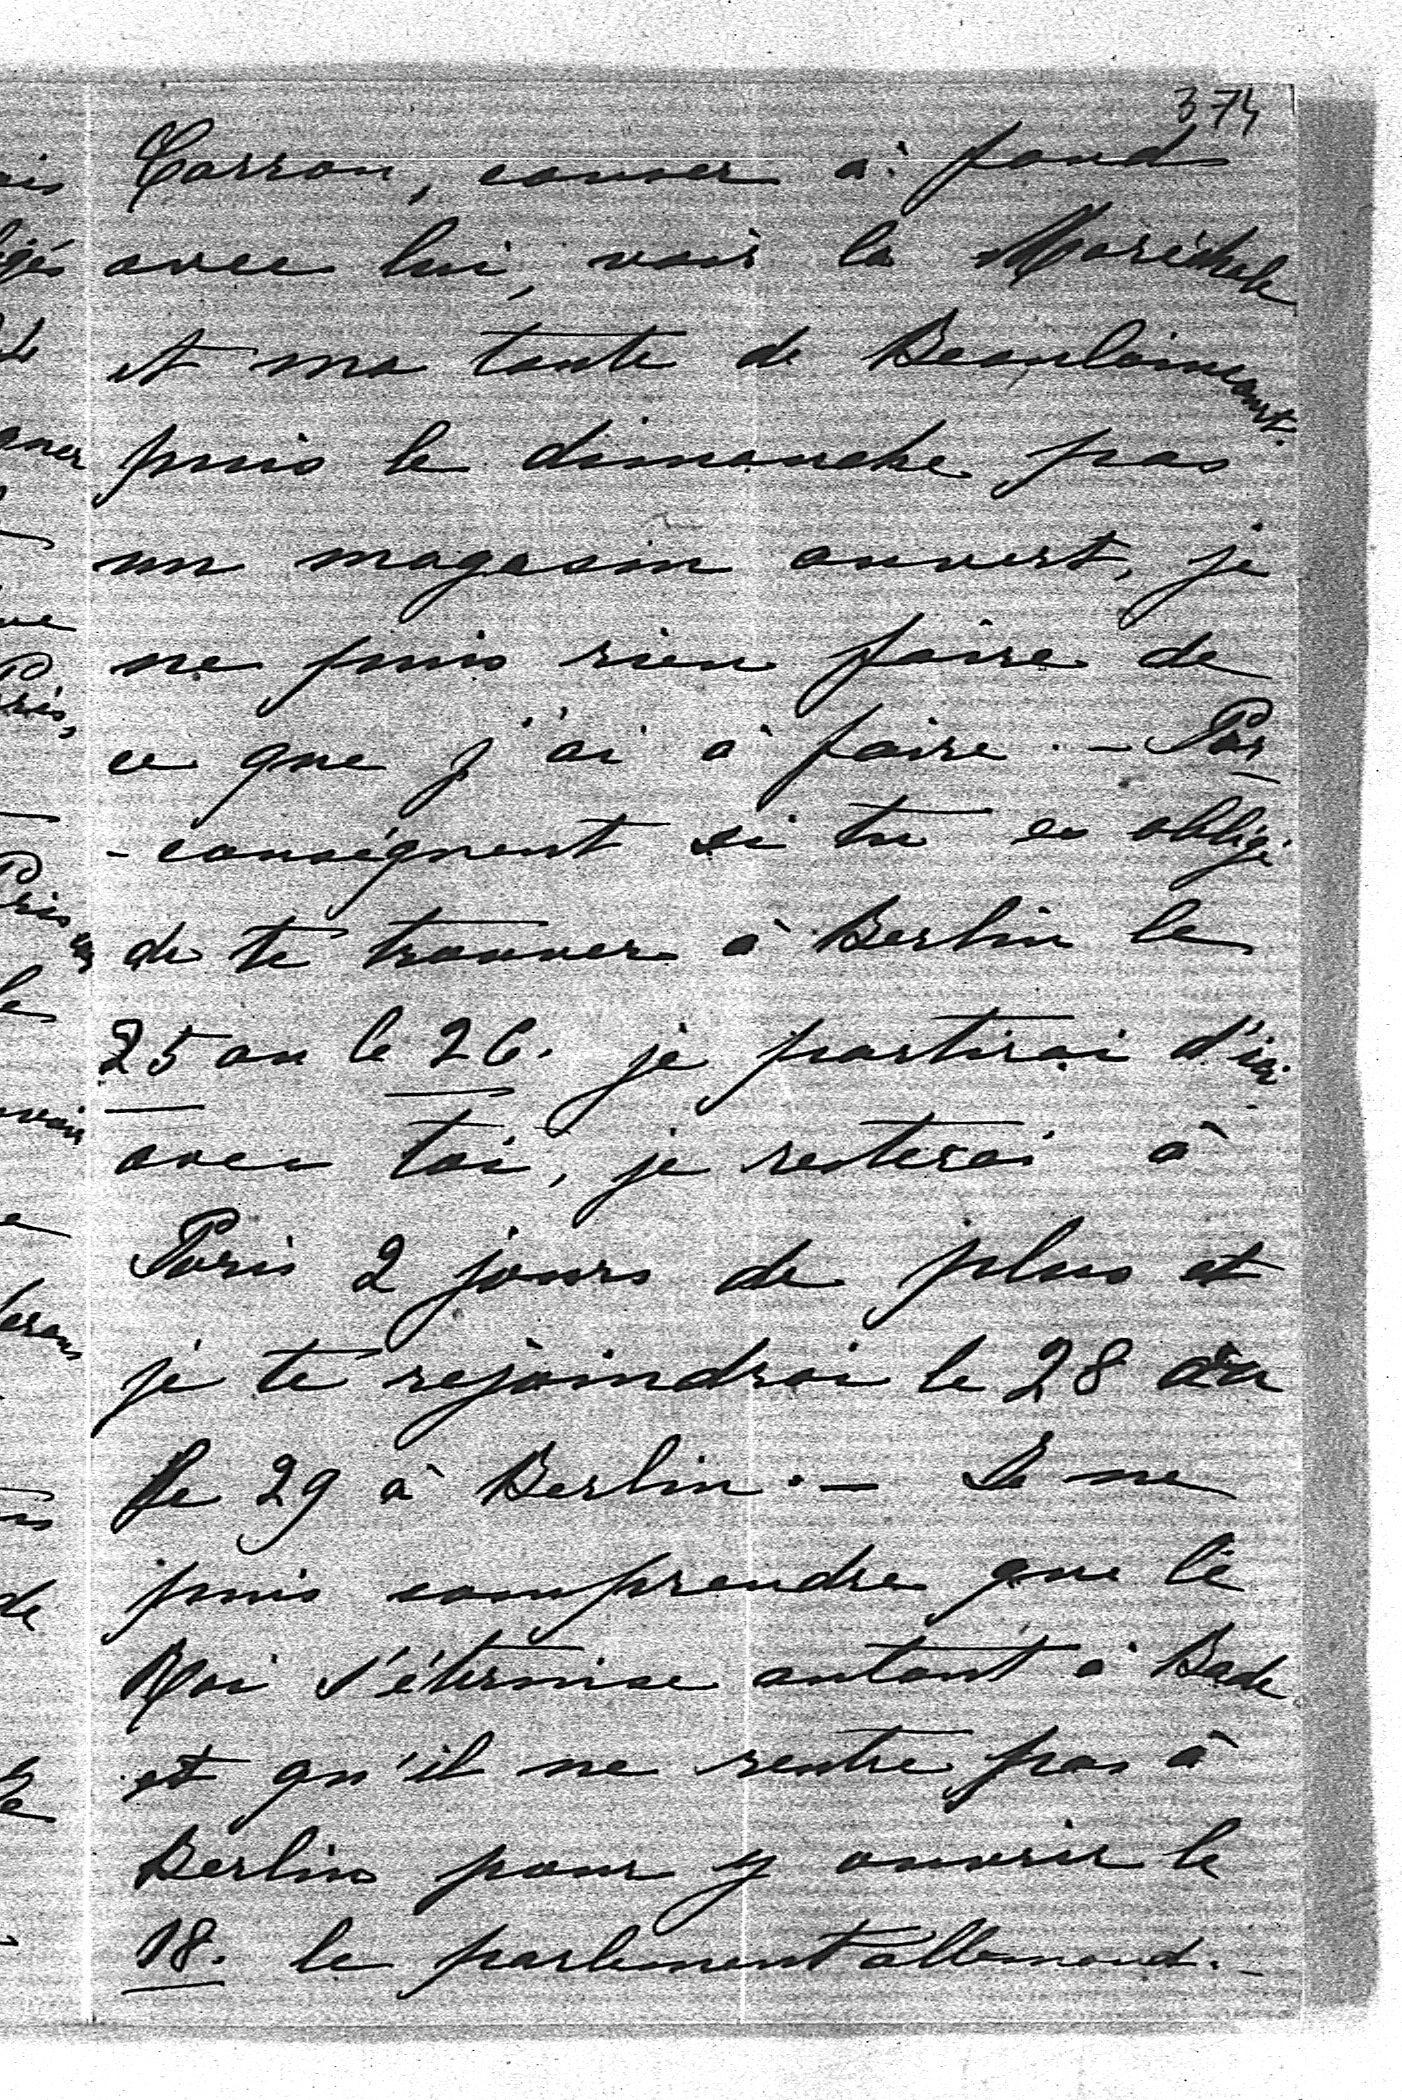 374
Carron, causer à fond
avec lui, voir la Maréchale
et ma tante de Beaulaincourt.
puis le dimanche pas
un magasin ouvert, je
ne puis rien faire de
ce que j'ai à faire. - Par
-conséquent si tu es obligé
de te trouver à Berlin le
25 ou le 26. je partirai d'ici
avec toi, je resterai à
Paris 2 jours de plus et
je te rejoindrai le 28 ou
le 29 à Berlin. - Je ne
puis comprendre que le
Roi s'éternise autant à Bade
et qu'il ne rentre pas à
Berlin pour y ouvrir le
18. le parlement allemand. -